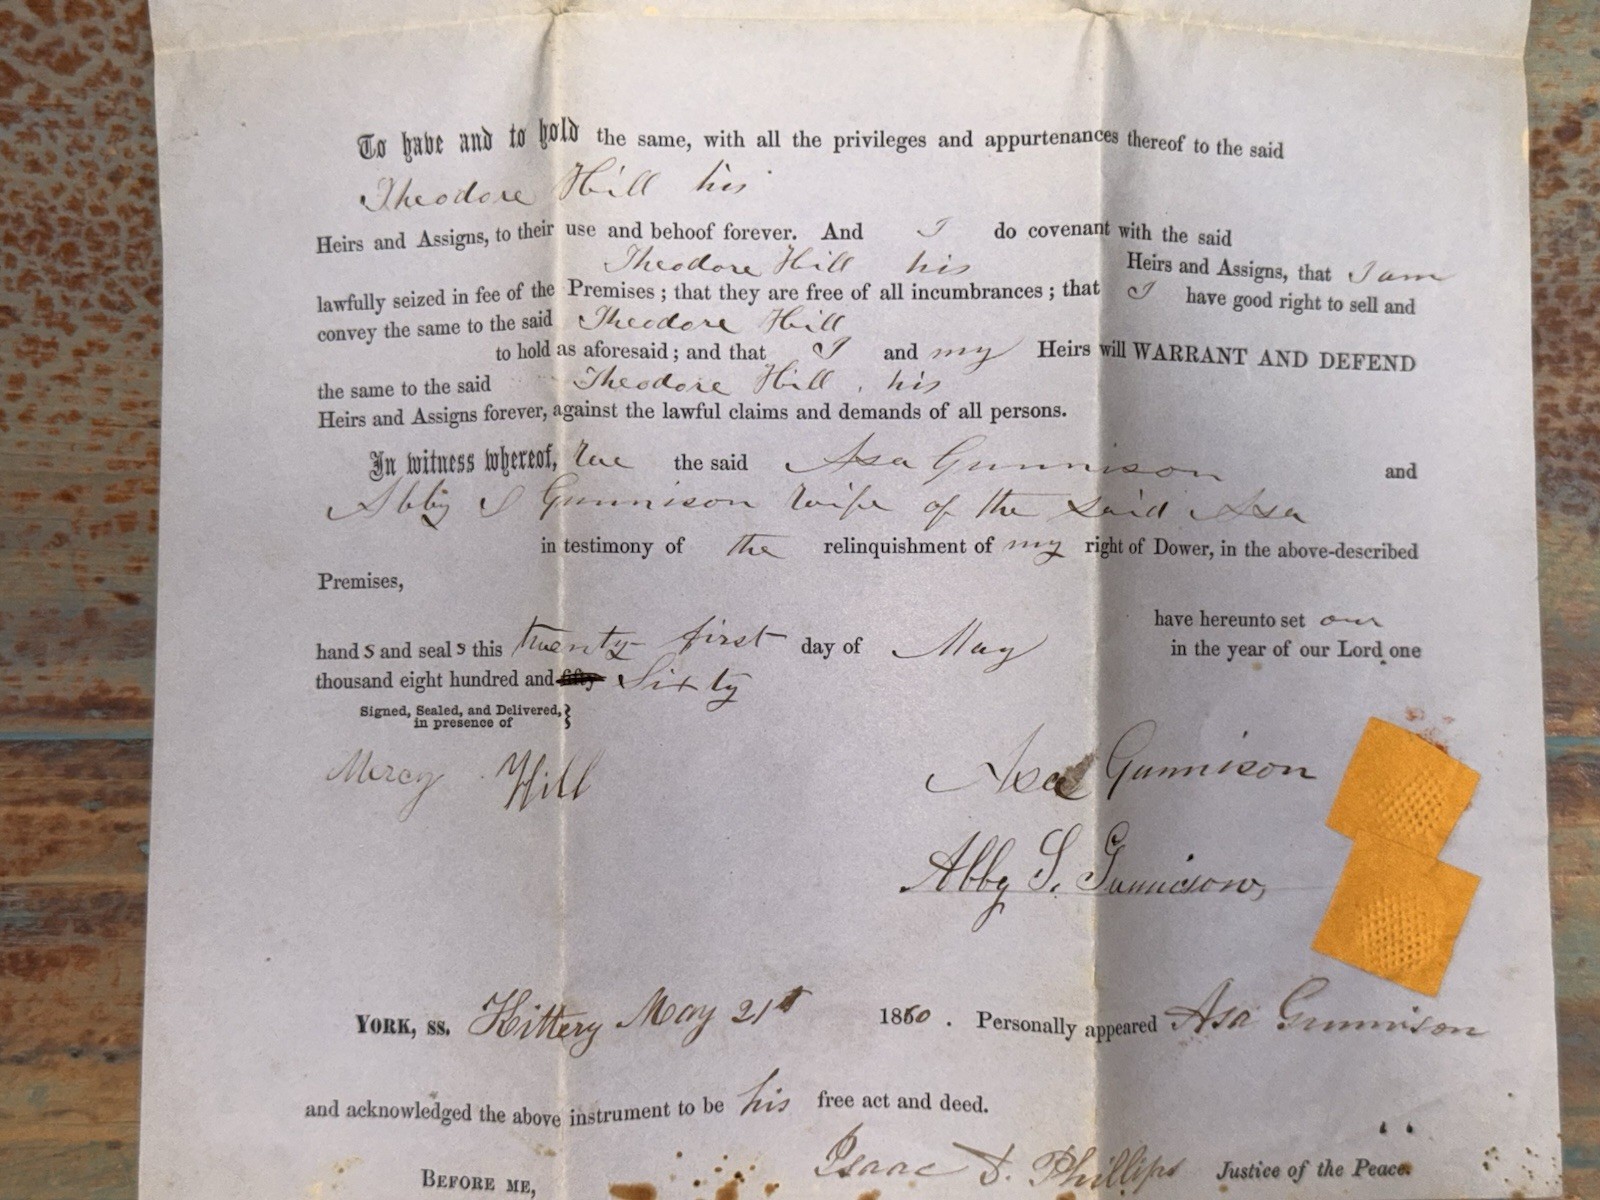 To have and to hold the same, with all the privileges and appurtenances thereof to the said
Theodore Hill his
Heirs and Assigns, to their use and behoof forever. And I do covenant with the said
Theodore Hill his Heirs and Assigns, that I am
lawfully seized in fee of the Premises; that they are free of all incumbrances; that I have good right to sell and
convey the same to the said Theodore Hill
to hold as aforesaid; and that I and my Heirs will WARRANT AND DEFEND
the same to the said Theodore Hill, his
Heirs and Assigns forever, against the lawful claims and demands of all persons.
In witness whereof, We the said Asa Gunnison and
Abby S Gunnison wife of the said Asa
in testimony of the relinquishment of my right of Dower, in the above-described
Premises,
have hereunto set our
hand s and seal s this twenty-first day of May in the year of our Lord one
thousand eight hundred and fifty Sixty
Signed, Sealed, and Delivered, }
in presence of
Mercy Hill
Asa Gunnison
Abby S. Gunnison,
YORK, ss. Kittery May 21st 1860. Personally appeared Asa Gunnison
and acknowledged the above instrument to be his free act and deed.
Isaac D. Phillips Justice of the Peace.
BEFORE ME,